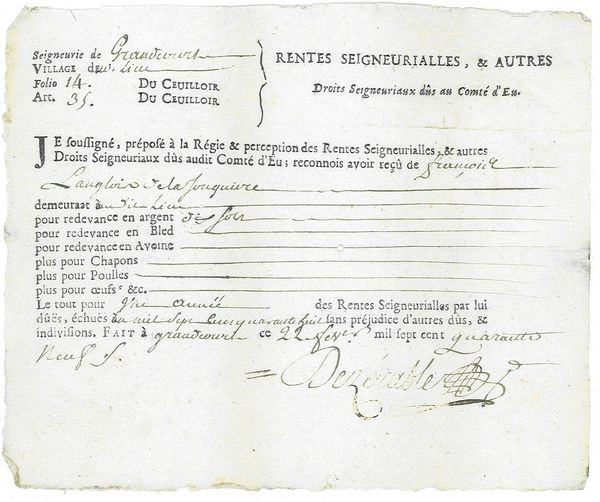 Seigneurie de Grandcourt
VILLAGE dudit Lieu
Folio 14. DU CEUILLOIR
Art. 35. DU CEUILLOIR
RENTES SEIGNEURIALLES, & AUTRES
Droits Seigneuriaux dûs au Comté d'Eu.
JE soussigné, préposé à la Régie & perception des Rentes Seigneurialles, & autres
Droits Seigneuriaux dûs audit Comté d'Eu; reconnois avoir reçu de françois
Langlois de la
demeurant audit Lieu
pour redevance en argent
pour redevance en Bled
pour redevance en Avoine
plus pour Chapons
plus pour Poulles
plus pour œufs & &c.
Le tout pour une année des Rentes Seigneurialles par lui
dûës, échuës mil Sept Cens quarante huit sans préjudice d'autres dûs, &
indivisions. FAIT à grandcourt ce 22 fevr mil sept cent quarante
neuf